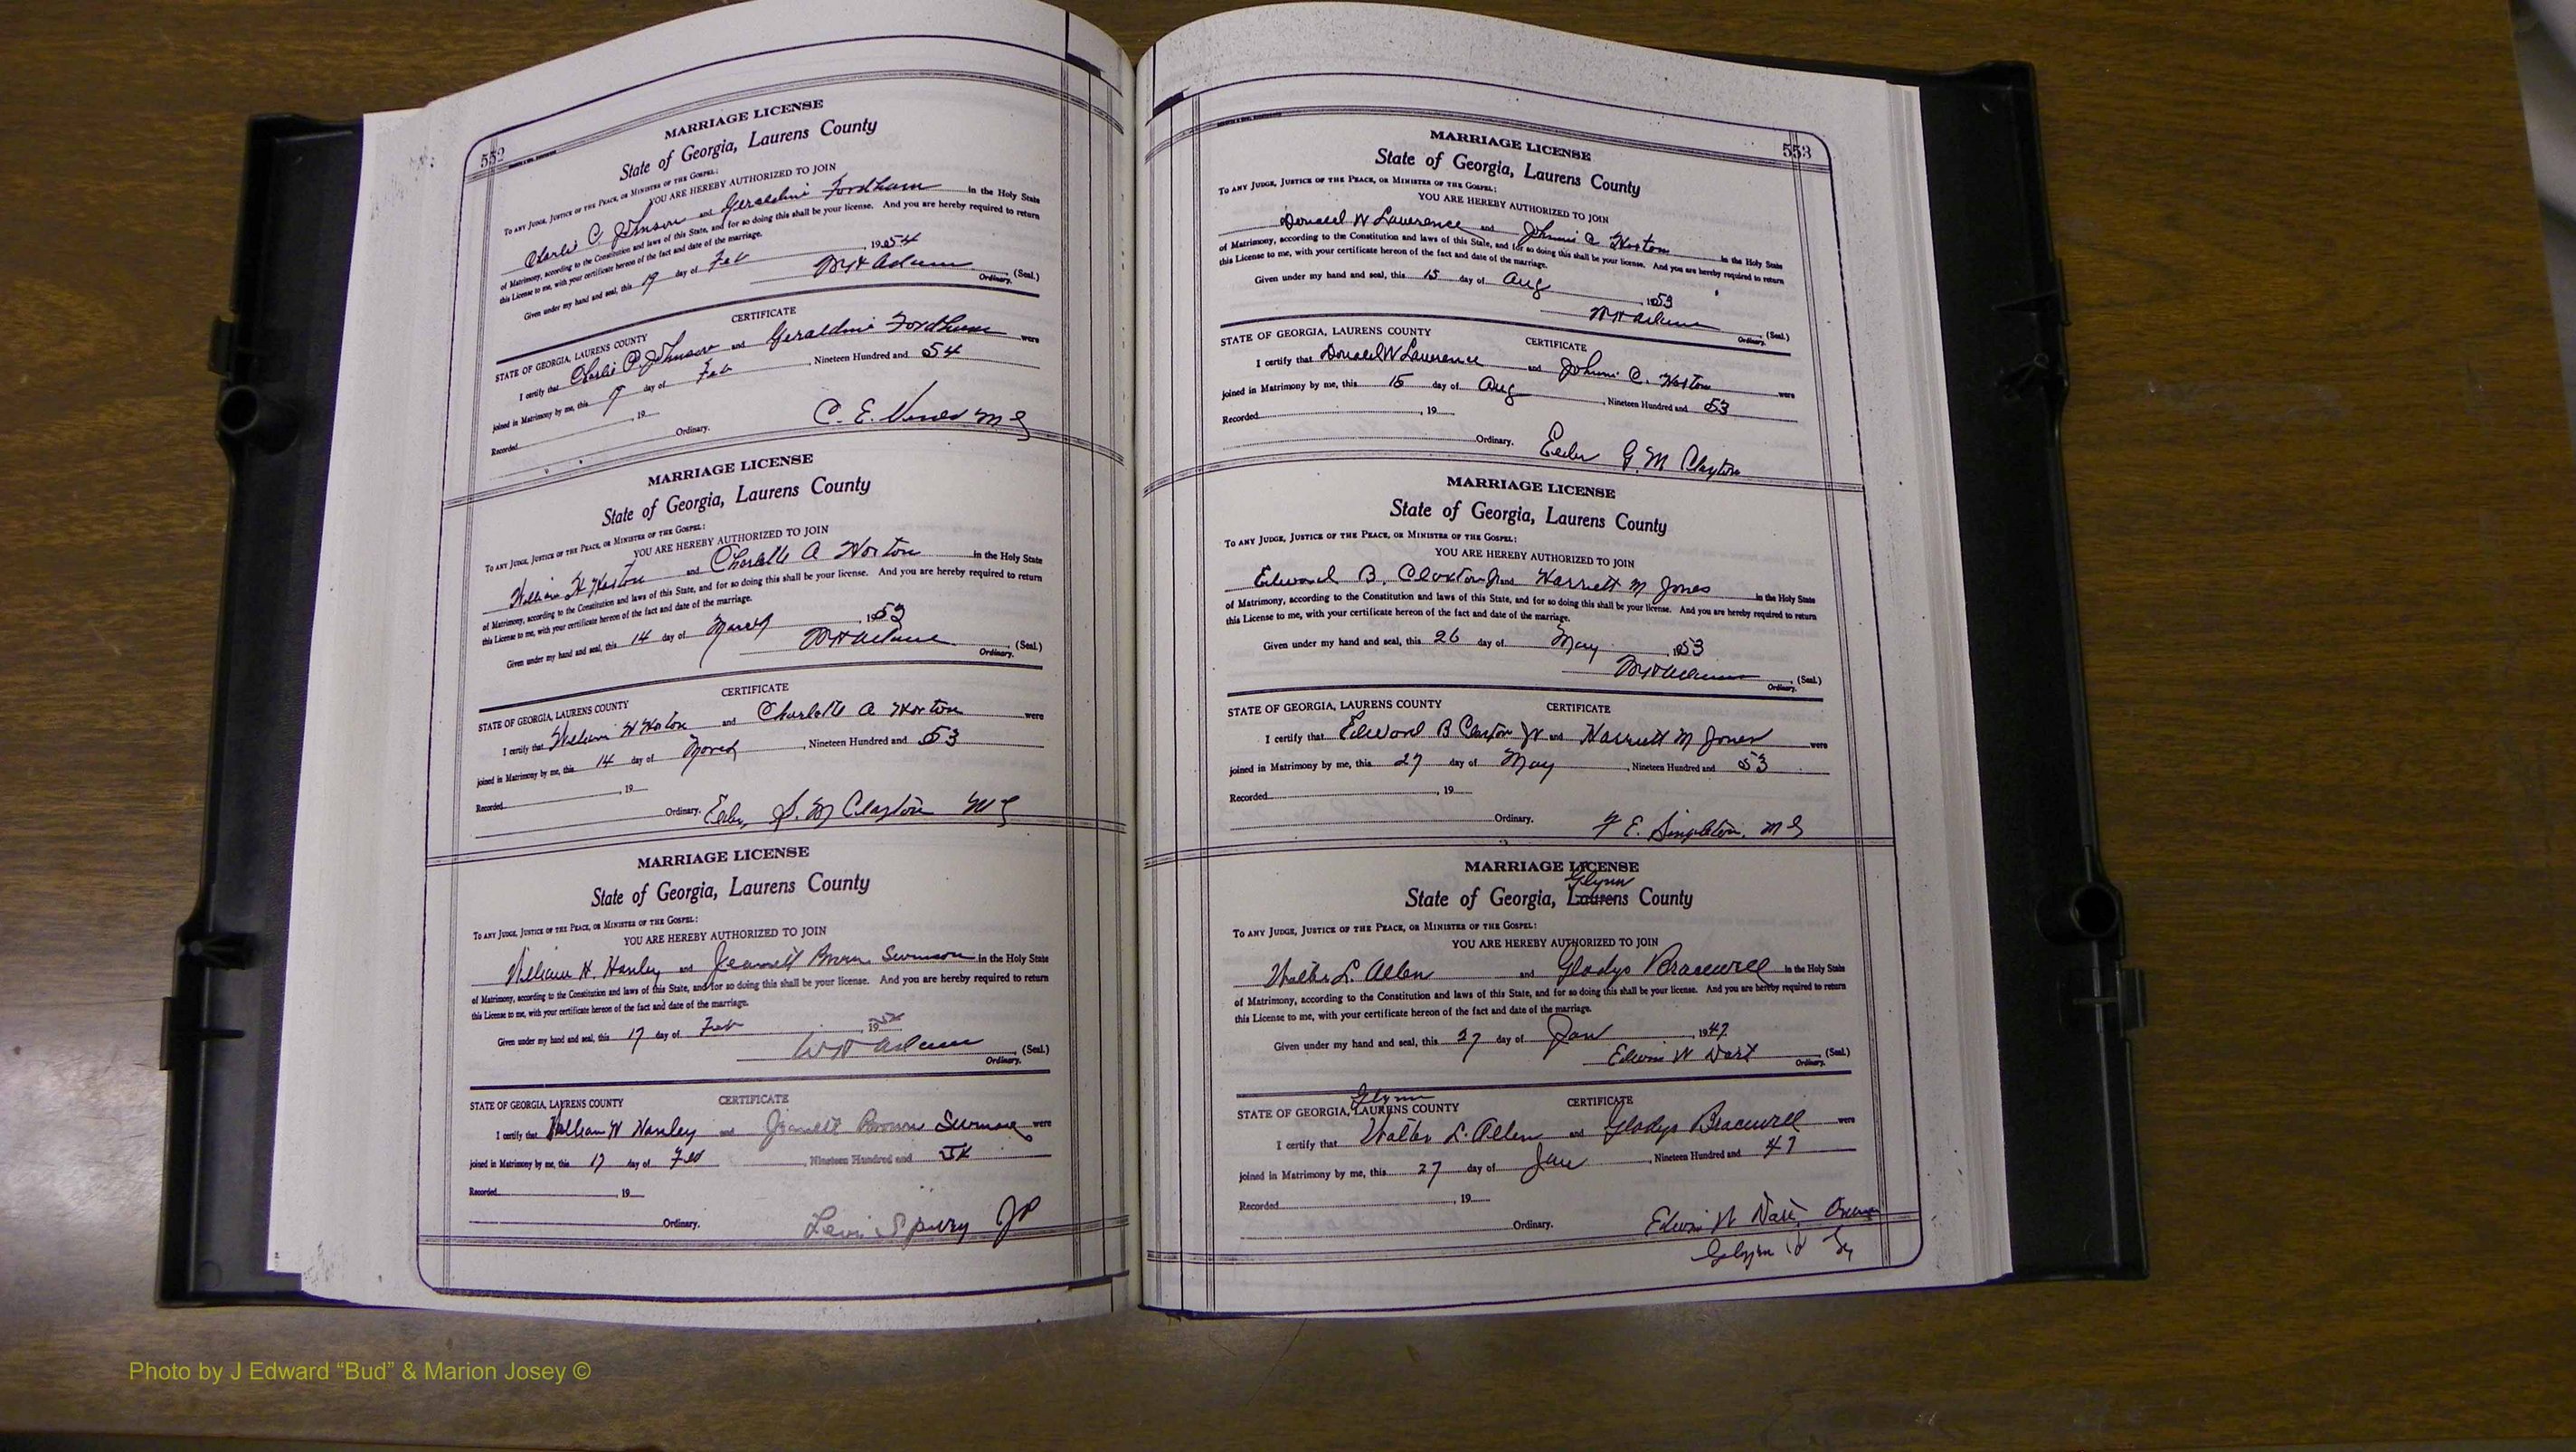 552
MARRIAGE LICENSE
State of Georgia, Laurens County
TO ANY JUDGE, JUSTICE OF THE PEACE, OR MINISTER OF THE GOSPEL:
YOU ARE HEREBY AUTHORIZED TO JOIN
Charlie C. Johnson and Geraldine Fordham in the Holy State
of Matrimony, according to the Constitution and laws of this State, and for so doing this shall be your license. And you are hereby required to return
this License to me, with your certificate hereon of the fact and date of the marriage.
Given under my hand and seal, this 19 day of Feb, 1954
Adams (Seal.)
Ordinary.
CERTIFICATE
STATE OF GEORGIA, LAURENS COUNTY
I certify that Charlie C. Johnson and Geraldine Fordham were
joined in Matrimony by me, this day of Feb, Nineteen Hundred and 54
Recorded, 19
Ordinary. C. E. M G
MARRIAGE LICENSE
State of Georgia, Laurens County
TO ANY JUDGE, JUSTICE OF THE PEACE, OR MINISTER OF THE GOSPEL:
YOU ARE HEREBY AUTHORIZED TO JOIN
William H Horton and Charlotte A Horton in the Holy State
of Matrimony, according to the Constitution and laws of this State, and for so doing this shall be your license. And you are hereby required to return
this License to me, with your certificate hereon of the fact and date of the marriage.
Given under my hand and seal, this 14 day of March, 1953
Adams (Seal.)
Ordinary.
CERTIFICATE
STATE OF GEORGIA, LAURENS COUNTY
I certify that William H Horton and Charlotte A Horton were
joined in Matrimony by me, this 14 day of March, Nineteen Hundred and 53
Recorded, 19
Ordinary. Elder M Claxton M G
MARRIAGE LICENSE
State of Georgia, Laurens County
TO ANY JUDGE, JUSTICE OF THE PEACE, OR MINISTER OF THE GOSPEL:
YOU ARE HEREBY AUTHORIZED TO JOIN
William H. Hanley and Jeanett Brown in the Holy State
of Matrimony, according to the Constitution and laws of this State, and for so doing this shall be your license. And you are hereby required to return
this License to me, with your certificate hereon of the fact and date of the marriage.
Given under my hand and seal, this 17 day of Feb, 1954
Adams (Seal.)
Ordinary.
CERTIFICATE
STATE OF GEORGIA, LAURENS COUNTY
I certify that William H Hanley and Jeanett Brown were
joined in Matrimony by me, this 17 day of Feb, Nineteen Hundred and 54
Recorded, 19
Ordinary. Levi Spivey JP
553
MARRIAGE LICENSE
State of Georgia, Laurens County
TO ANY JUDGE, JUSTICE OF THE PEACE, OR MINISTER OF THE GOSPEL:
YOU ARE HEREBY AUTHORIZED TO JOIN
Donald W Lawrence and Johnnie C Horton in the Holy State
of Matrimony, according to the Constitution and laws of this State, and for so doing this shall be your license. And you are hereby required to return
this License to me, with your certificate hereon of the fact and date of the marriage.
Given under my hand and seal, this 15 day of Aug, 1953
Adams (Seal.)
Ordinary.
STATE OF GEORGIA, LAURENS COUNTY CERTIFICATE
I certify that Donald W Lawrence and Johnnie C. Horton were
joined in Matrimony by me, this 15 day of Aug, Nineteen Hundred and 53
Recorded, 19
Ordinary. Elder G. M Claxton
MARRIAGE LICENSE
State of Georgia, Laurens County
TO ANY JUDGE, JUSTICE OF THE PEACE, OR MINISTER OF THE GOSPEL:
YOU ARE HEREBY AUTHORIZED TO JOIN
Edward B. Claxton Jr and Harriett M Jones in the Holy State
of Matrimony, according to the Constitution and laws of this State, and for so doing this shall be your license. And you are hereby required to return
this License to me, with your certificate hereon of the fact and date of the marriage.
Given under my hand and seal, this 26 day of May, 1953
Adams (Seal.)
Ordinary.
STATE OF GEORGIA, LAURENS COUNTY CERTIFICATE
I certify that Edward B Claxton Jr and Harriett M Jones were
joined in Matrimony by me, this 27 day of May, Nineteen Hundred and 53
Recorded, 19
Ordinary. F E. Singleton, M G
MARRIAGE LICENSE
Glynn
State of Georgia, Laurens County
TO ANY JUDGE, JUSTICE OF THE PEACE, OR MINISTER OF THE GOSPEL:
YOU ARE HEREBY AUTHORIZED TO JOIN
Walter L. Allen and Gladys Bracewell in the Holy State
of Matrimony, according to the Constitution and laws of this State, and for so doing this shall be your license. And you are hereby required to return
this License to me, with your certificate hereon of the fact and date of the marriage.
Given under my hand and seal, this 27 day of Jan, 1947
Edwin W Dart (Seal.)
Ordinary.
Glynn
STATE OF GEORGIA, LAURENS COUNTY CERTIFICATE
I certify that Walter L. Allen and Gladys Bracewell were
joined in Matrimony by me, this 27 day of Jan, Nineteen Hundred and 47
Recorded, 19
Ordinary. Edwin W Dart,
Glynn
Photo by J Edward “Bud” & Marion Josey ©